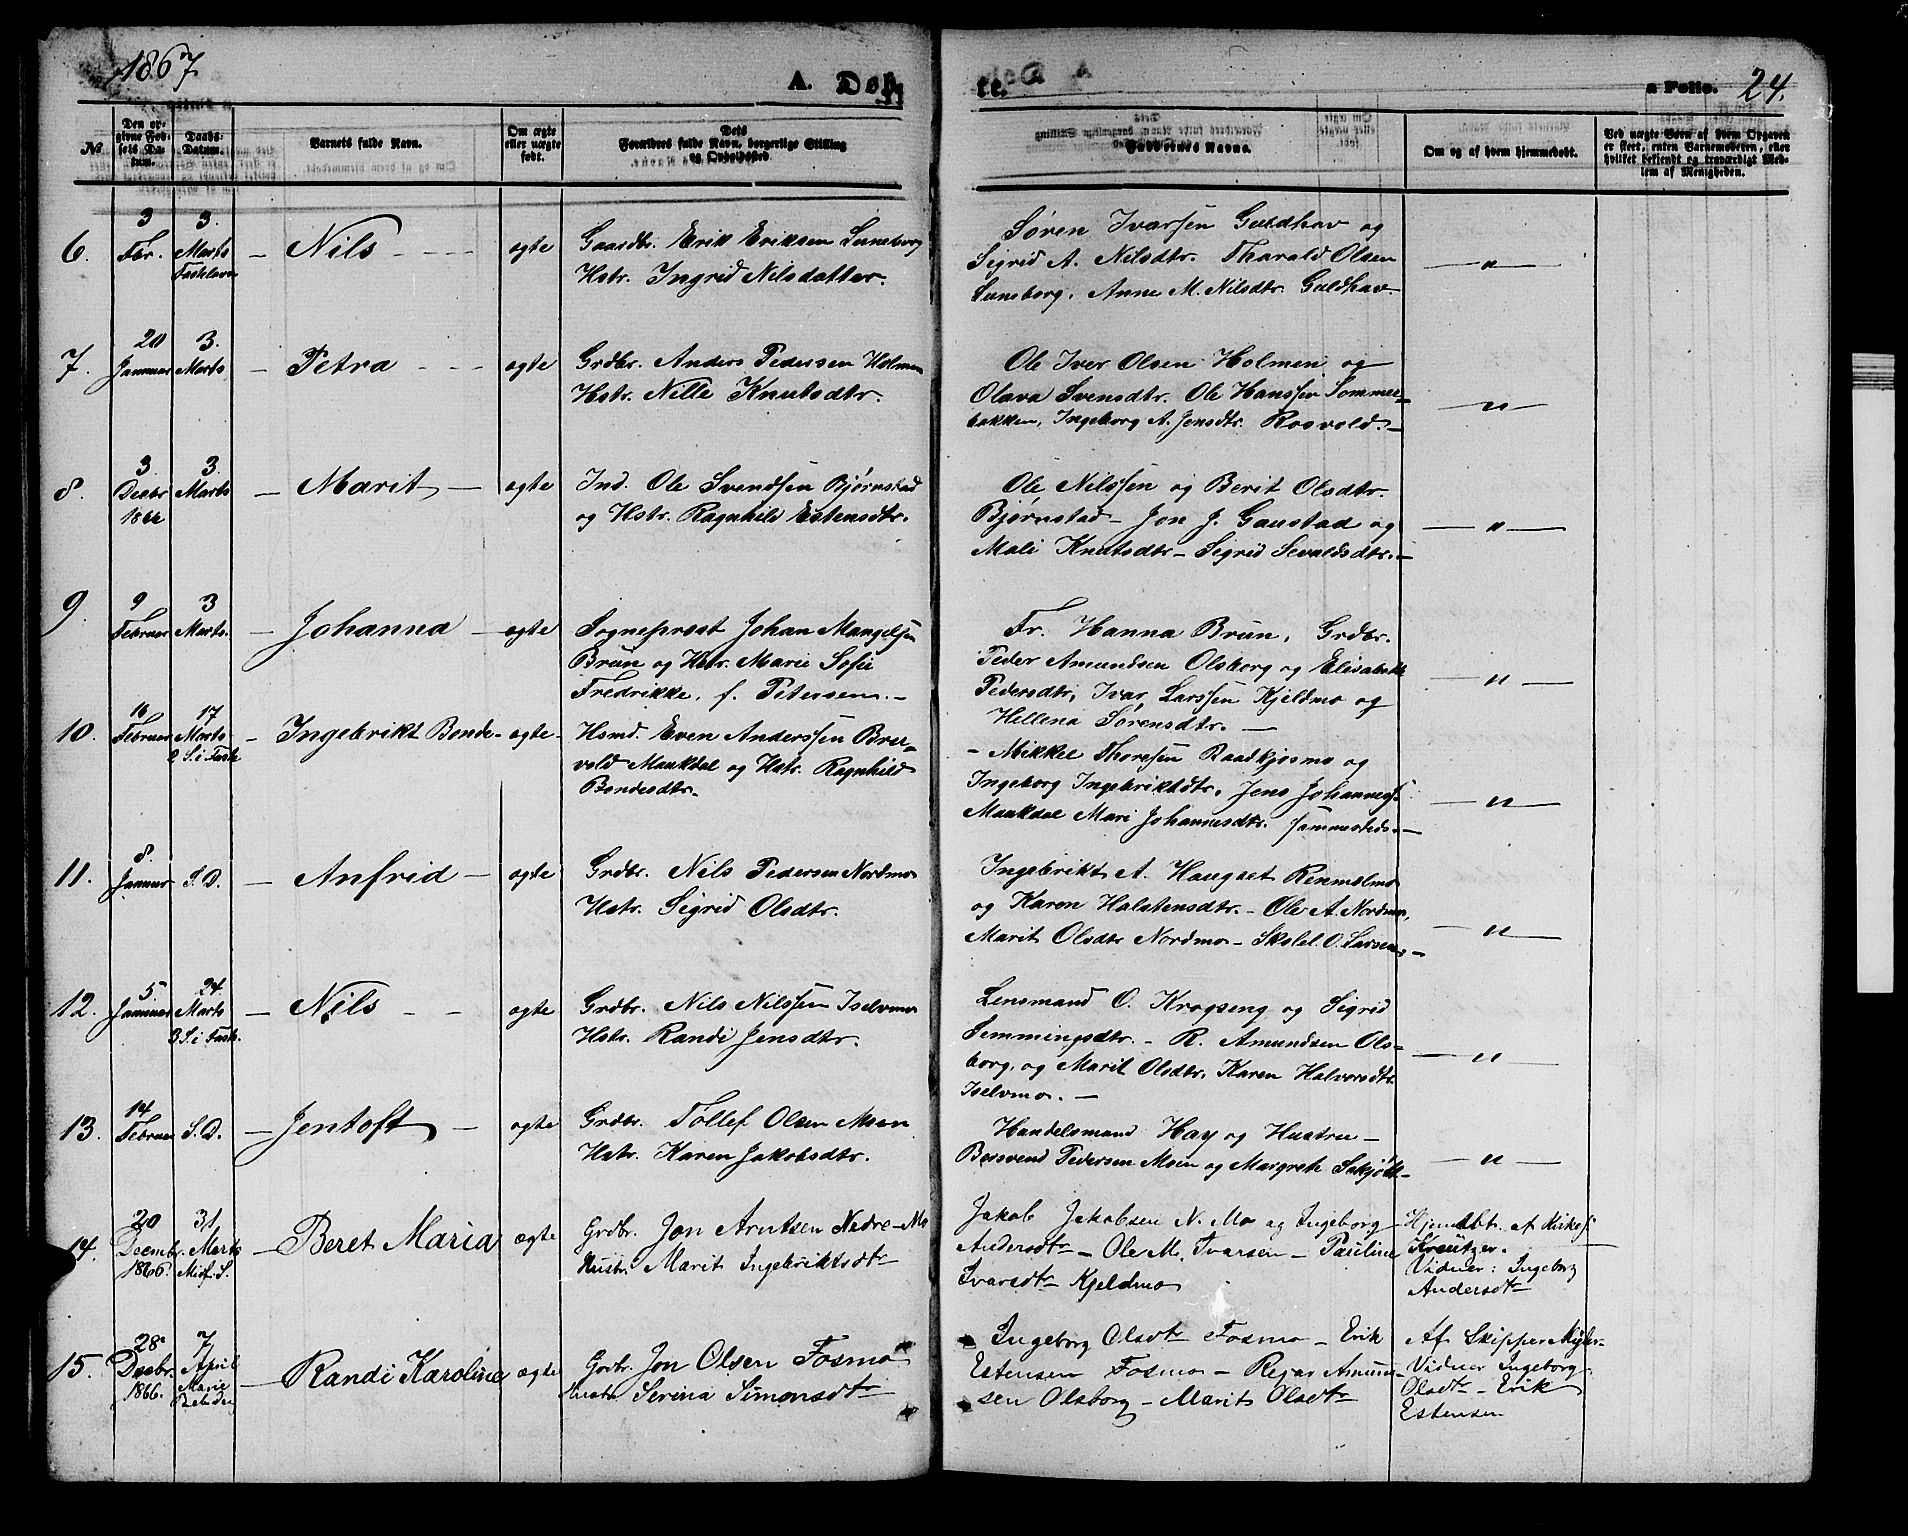 1867
A. Døb
te.
a Folio. 24.
No.
Den opgivne Fødsels Datum.
Daabs-Datum.
Barnets fulde Navn.
Om ægte eller uægte født.
Dets Forældres fulde Navn, borgerlige Stilling og Opholdssted.
Faddernes Navne.
Om og af hvem hjemmedøbt.
Ved uægte Børn af hvem Opgaven er skeet, enten Barnemoderen, eller hvilket bekjendt og troværdigt Medlem af Menigheden.
6. 3 Febr. 3. Marts Fastelavn — Nils — ægte
Gaardbr. Erik Eriksen Luneborg
Hstr. Ingrid Nilsdatter.
Søren Ivarssen Guldhav og
Sigrid A. Nilsdtr. Tharald Olsen
Luneborg. Anne M. Nilsdtr. Guldhav. — " —
7. 20 Januar 3. Marts — Petra — ægte
Grdbr. Anders Pedersen Holmen
Hstr. Nille Knutsdtr.
Ole Iver Olsen Holmen og
Olava Svensdtr. Ole Hanssen Sommer-
bakken, Ingeborg A. Jensdtr. Rosvold. — " —
8. 3. Decbr 1866 3. Marts — Marit — ægte
Ind. Ole Svendsen Bjørnstad
og Hstr. Ragnhild Estensdtr.
Ole Nilssen og Berit Olsdtr.
Bjørnstad — Jon J. Gaustad og
Mali Knutsdtr — Sigrid Sevaldsdtr. — " —
9. 9 Februar 3 Marts. — Johanna — ægte
Sogneprest Johan Mangelsen
Brun og Hstr. Marie Sofie
Fredrikke, f. Petersen. —
Fr. Hanna Brun, Grdbr.
Peder Amundsen Olsborg og Elisabeth
Pedersdtr, Ivar Larssen Kjeldmo og
Hellena Sørensdtr. — " —
10. 16 Februar 17 Marts 2 S. i Faste — Ingebrikt Bonde — ægte —
Hsmd. Even Anderssen Brei-
vold Maukdal og Hstr. Ragnhild
Bondesdtr.
— Mikkel Thoresen Raadkjosmo og
Ingeborg Ingebriktdtr. Jens Johanness.
Maukdal Mari Johannesdtr. sammesteds. — " —
11. 8. Januar S. D. — Anfrid — ægte
Grdbr. Nils Pedersen Nordmo
Hstr. Sigrid Olsdtr.
Ingebrikt A. Haugset Renmelmo
og Karen Halstensdtr. — Ole A. Nordmo,
Marit Olsdtr Nordmo — Skolel. O. Larsen — " —
12. 5. Januar 24. Marts 3 S. i Fast. — Nils — ægte
Grdbr. Nils Nilssen Iselvmo
Hstr. Randi Jensdtr.
Lensmand O. Krogseng og Sigrid
Semmingsdtr. — R. Amundsen Ols-
borg, og Marit Olsdtr, Karen Halvorsdtr.
Iselvmo. — " —
13. 14 Februar S. D. — Jentoft — ægte
Grdbr. Tollef Olsen Moen
Hstr. Karen Jakobsdtr.
Handelsmand Hay og Hustru —
Besvend Pedersen Moen og Margrete — " —
14. 20 Decembr. 1866. 31 Marts Midf. S. — Beret Maria ægte
Grdbr. Jon Arntsen Nedre-Mo
Hustr. Marit Ingebriktsdtr
Jakob Jakobsen N. Mo og Ingeborg
Andersdtr — Ole M. Ivarsen — Pauline
Ivarsdtr Kjeldmo
Hjemdbt. af Kirkes.
Kreutzer.
Vidner: Ingeborg
Andersdtr
15. 28 Decbr. 1866. 7 April Marie Bebudg — Randi Karoline ægte
Gdrbr. Jon Olsen Fosmo
Hustr Serina Simonsdtr
Ingeborg Olsdtr Fosmo — Erik
Estensen Fosmo — Reiar Amund-
sen Olsborg — Marit Olsdtr
Af Skipper
Vidner Ingeborg
Olsdtr — Erik
Estensen